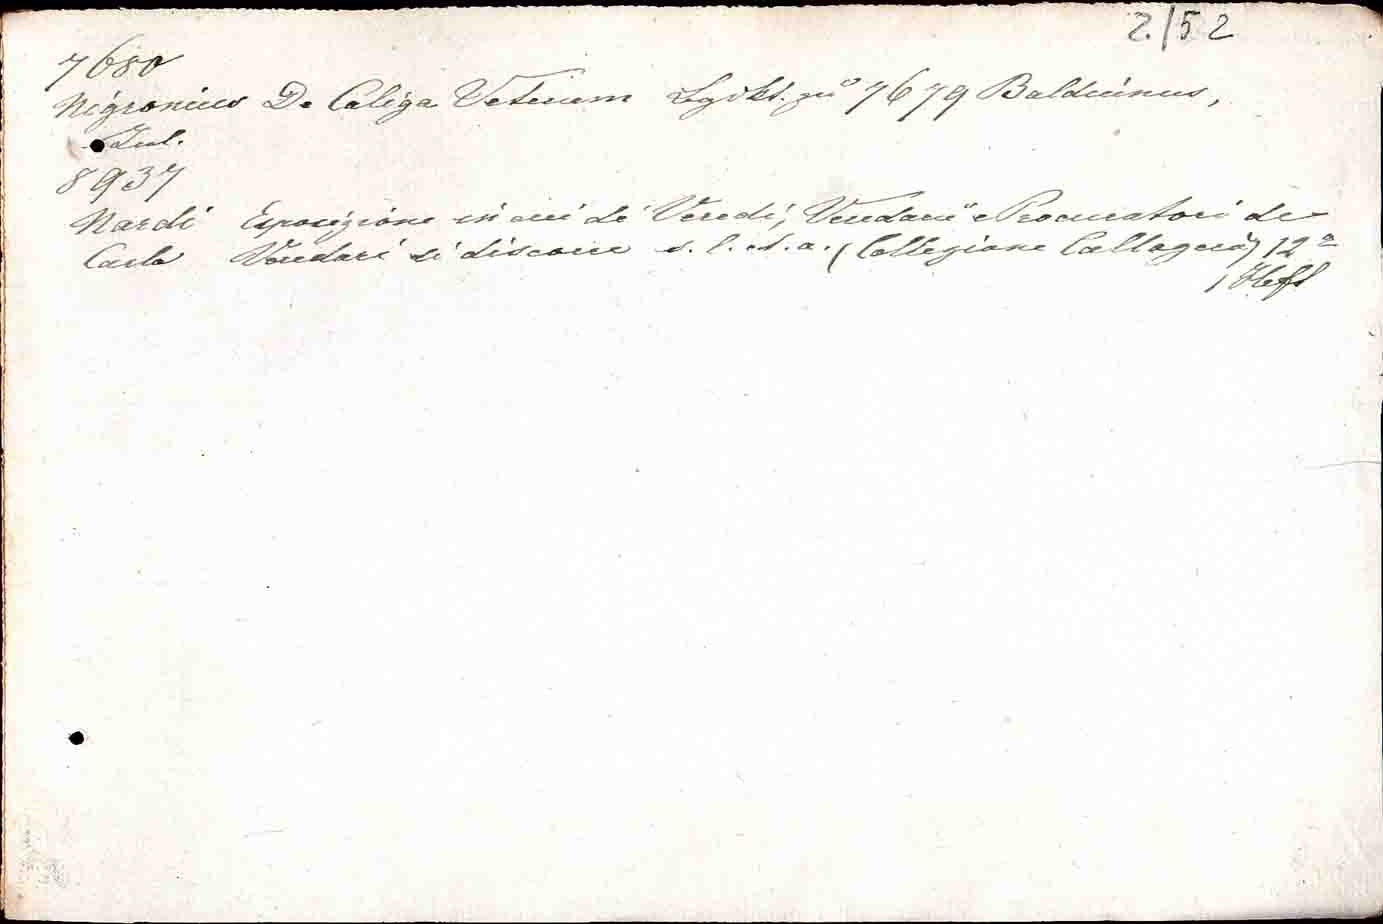 2./52
7680
Nigronius De Caliga Veterum 7679 Balduinus,
Jul.
8937
Nardi Esposizione in cui de' Veredi, Veredarii e Procuratori de
Carlo Veredari si discorre s. l. et. a. (Collezione Callogerà) 12º
1 Heft